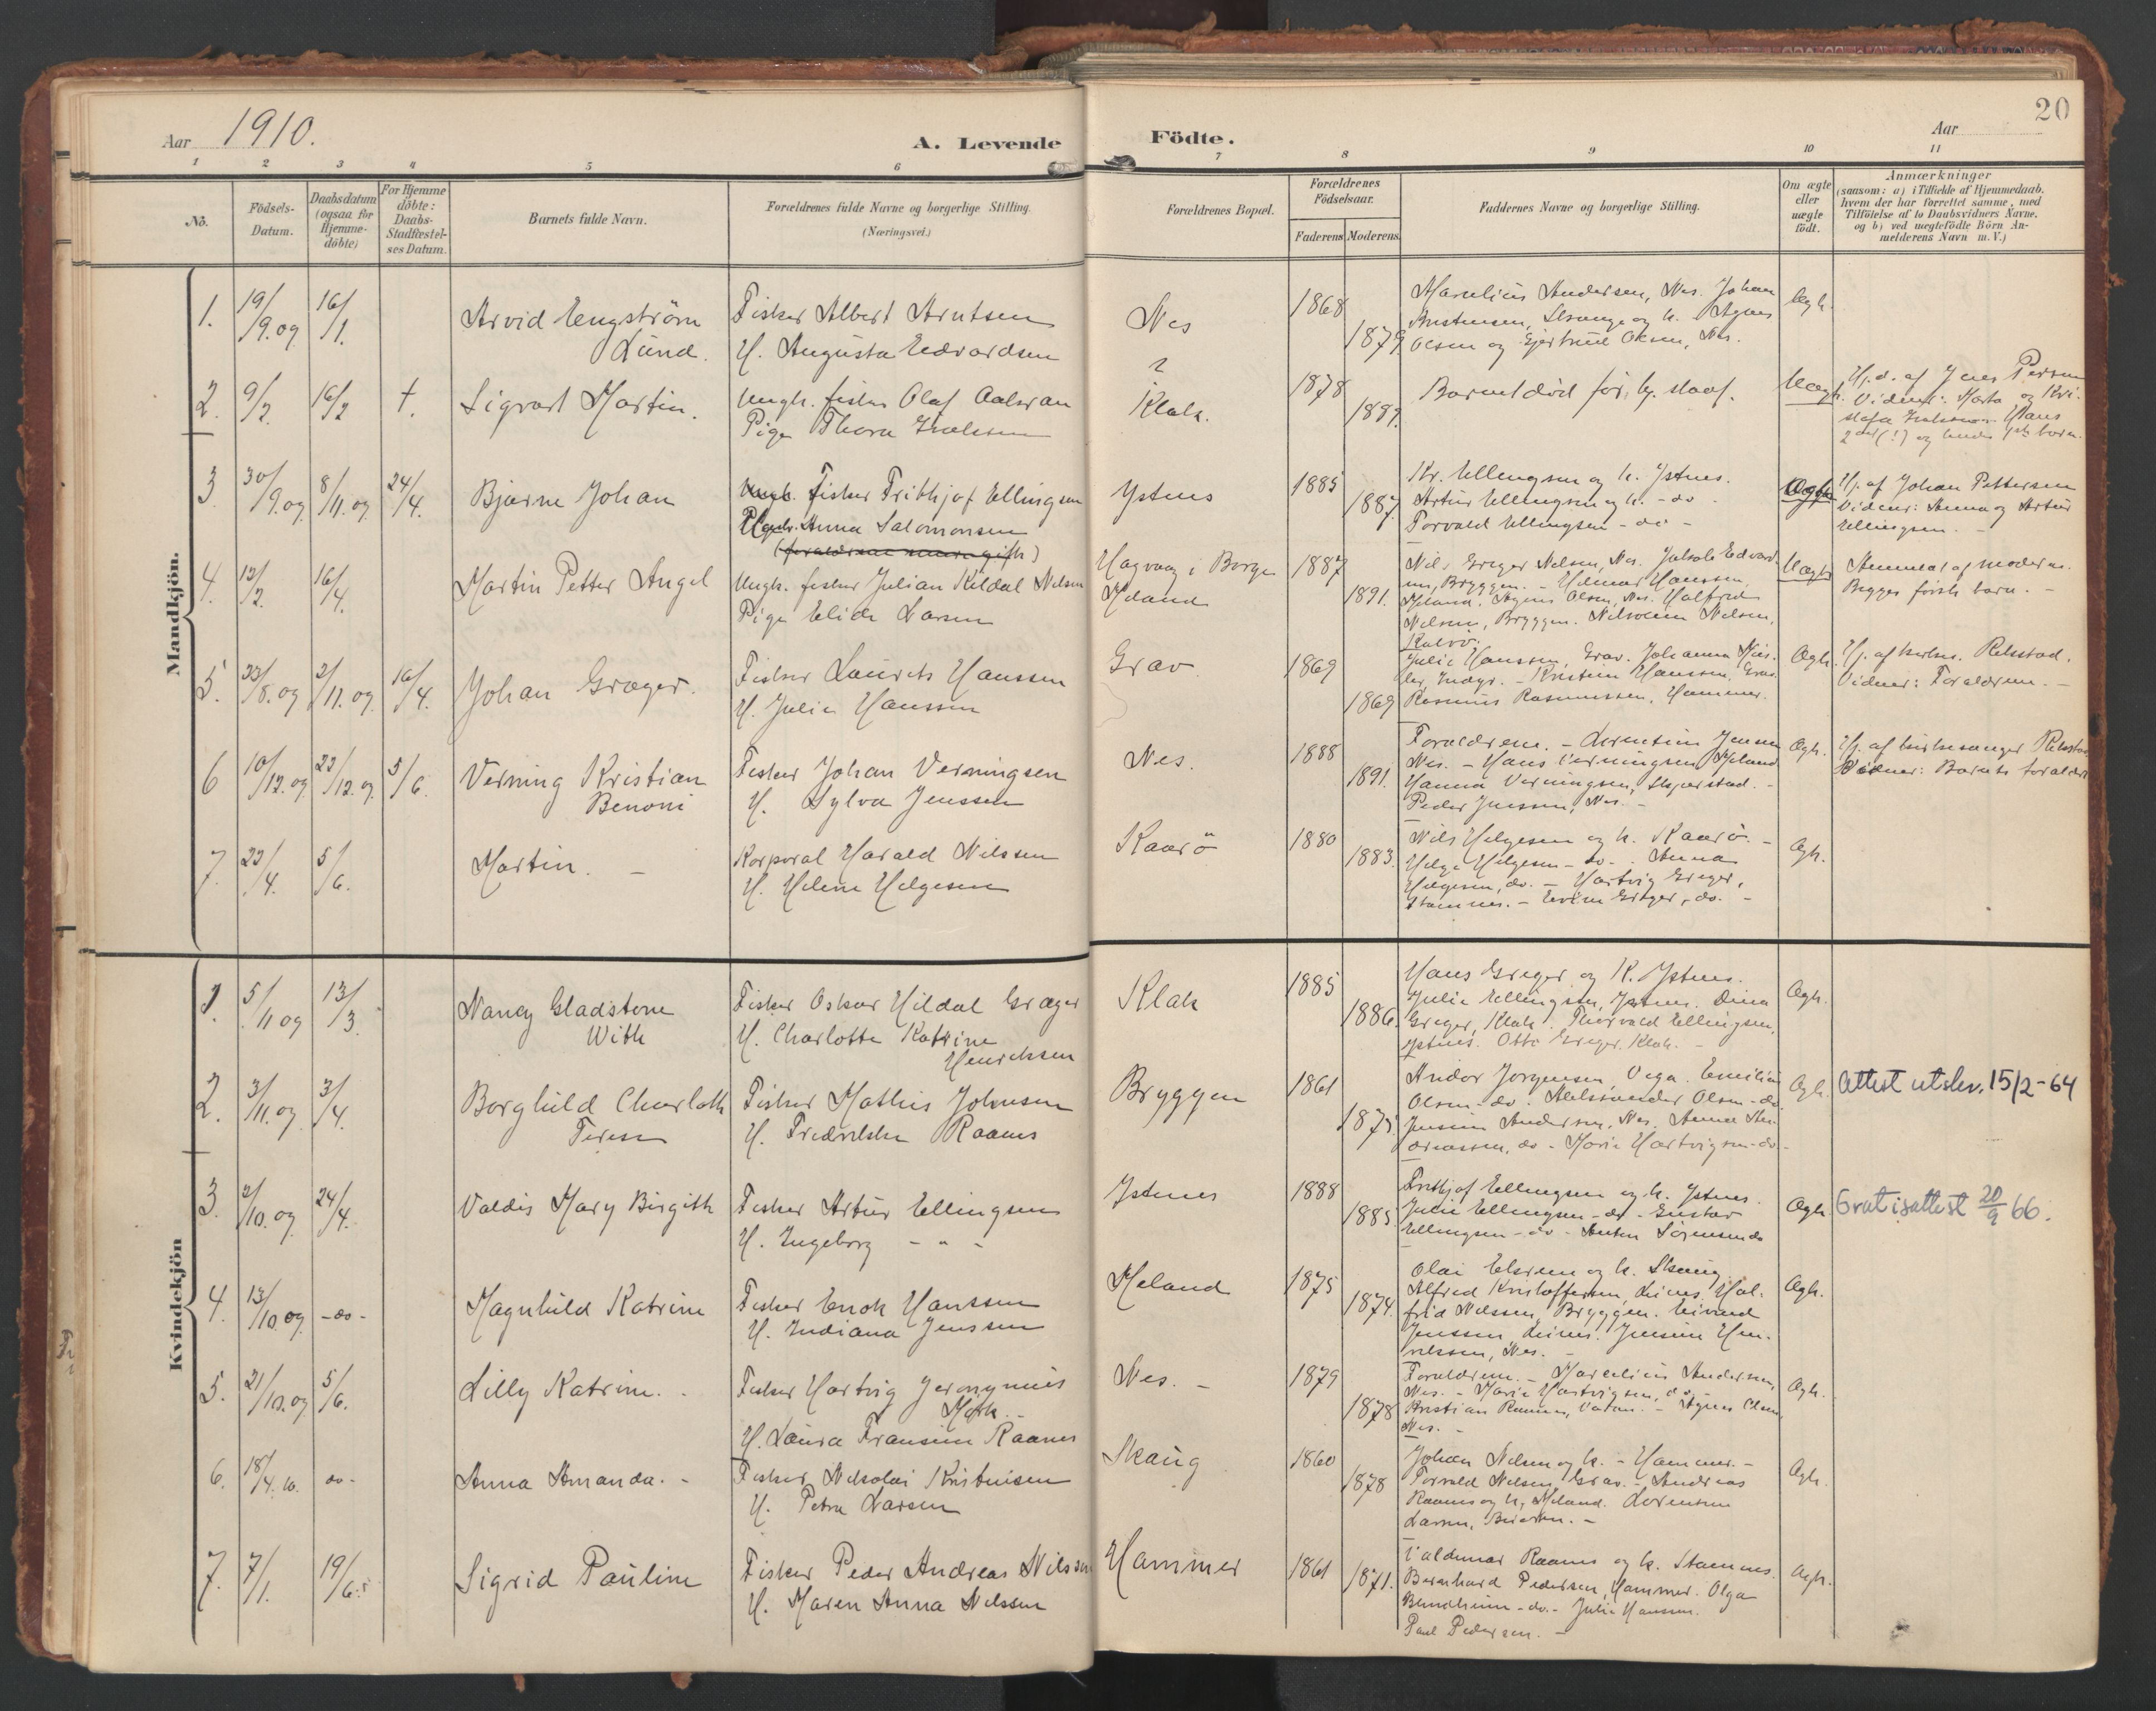 20
Aar 1910.
A. Levende Födte.
Aar
1 2 3 4 5 6 7 8 9 10 11
No.
Födsels-
Datum.
Daabsdatum
(ogsaa for
Hjemme-
döbte)
For Hjemme
döbte:
Daabs-
Stadfæstel-
ses Datum.
Barnets fulde Navn.
Forældrenes fulde Navne og borgerlige Stilling.
(Næringsvei.)
Forældrenes Bopæl.
Forældrenes
Födselsaar.
Faderens Moderens
Faddernes Navne og borgerlige Stilling.
Om ægte
eller
uægte
födt.
Anmærkninger
(saasom: a) i Tilfælde af Hjemmedaab,
hvem der har forrettet samme, med
Tilföielse af to Daabsvidners Navne,
og b) ved uægtefödte Börn An-
melderens Navn m. V.)
Mandkjön.
1. 19/9.09 16/1. Arvid Engström
Lund.
Fisker Albert Arntsen
H. Augusta Edvardsen
Nes
1868
1879
Marselius Andersen, Nes. Johan
Olsen og Gjertrud Olsen, Nes.
Ægt.
2. 9/2. 16/2 †. Sigvart Martin.
Ungk. fisker Olaf
Pige Thora
?
Klak.
1878
Barnet död för
Uægt.
Hj. d. af Jens
Vidner: Marta og
3 30/9.09 8/11.09 24/4. Bjarne Johan
Ungk. Fisker Frithjof Ellingsen
Anna Salomonsen
Ystnes
1885
1887.
Kr. Ellingsen og h. Ystnes.
Artur Ellingsen og h. - do -
Torvald Ellingsen - do -
Ægte
Hj. af Johan Pettersen
Vidner: Anna og Artur
Ellingsen. -
4. 13/2. 16/4. Martin Petter Angel
Ungk. fisker Julian Kildal Nilsen
Pige Elida Larsen
Hagvaag i Borge
Meland
1887
1891.
Nils Greger Nelsen, Nes.
Bryggen. - Hanssen,
Meland. Agnes Olsen, Nes. Halfrid
Nilsen, Bryggen. Nilsen,
Kalvö.
Uægte
Anmeldt af moderen.
Begges förste barn. -
5. 23/8.09 2/11.09 16/4. Johan Græger.
Fisker Laurits Hanssen
H. Julie Hanssen
Grav
1869
1869
Julie Hanssen, Grav. Johanna
Kristine Hanssen, Grav.
Rasmus Rasmussen, Hammer.
Ægt.
Hj. af kirkes. Relstad.
Vidner: Forældrene. -
6 10/12.09 23/12.09 5/6. Verning Kristian
Benoni
Fisker Johan Verningsen
H. Sylva Jenssen
Nes.
1888
1891.
Forældrene. - Lorentine Jensen
Nes. - Hans Verningsen, Meland
Hanna Verningsen, -
Peder Jenssen, Nes. -
Ægt.
Hj. af kirkesanger Relstad
Vidner: Barnets forældre
7. 23/4. 5/6. Martin. -
Korporal Harald Nilssen
H. Helene Helgesen
Kaarö
1880
1883.
Nils Helgesen og h. Kaarö. -
Helge Helgesen - do - . Anna
Helgesen, do. - Hartvig Greger,
Stamnes. - Greger, do. -
Ægt.
Kvindekjön
1. 5/11 09 13/3. Nancy Gladstone
With
Fisker Oskar Hildal Græger
H. Charlotte Katrine
Henrikssen
Klak
1885
1886.
Hans Greger og K. Ystnes.
Julie Ellingsen, Ystnes. Dina
Greger, Klak. Thorvald Ellingsen,
Ystnes. Otto Greger. Klak. -
Ægt.
2. 3/11.09 3/4. Borghild Charlotte
Terese
Fisker Mathis Johnsen
H. Fredrikke Raanes
Bryggen
1861
1875
Andor Jorgensen, Vega. Emilie
Olsen - do. Aleksander Olsen - do.
Jensine Andersen, Nes. Anna
do - Marie Hartvigsen - do -
Ægt.
Attest utskr. 15/2-64
3. 2/10.09 24/4. Valdis Mary Birgith
Fisker Artur Ellingsen
H. Ingeborg - " -
Ystnes
1888
1885
Frithjof Ellingsen og h. Ystnes.
Julie Ellingsen - do - Gustav
Ellingsen - do - Anton Sörensen do
Ægt.
Gratisattest 20/9 66.
4. 13/10.09 - do - Magnhild Katrine
Fisker Enok Hanssen
H. Indiana Jenssen
Meland
1875
1874.
Olai og h. Skaug.
Alfred Kristoffersen, Leines. Hal-
frid Nilssen, Bryggen. Eivind
Jenssen, Leines. Jensine Hen-
rikssen, Nes. -
Ægt.
5. 21/10.09 5/6. Lilly Katrine. -
Fisker Hartvig Jeronymus
Mörk. -
H. Laura Fransine Raanes
Nes. -
1879
1878
Forældrene. - Marcelius Andersen,
Nes. - Marie Hartvigsen, do -
Kristian Raanes, - Agnes Olsen,
Nes. -
Ægt.
6. 18/4. 10. do - Anna Amanda. -
Fisker Nikolai Kristensen
H. Petra Larsen
Skaug
1860
1878
Johan Nilsen og h. - Hammer. -
Torvald Nilsen, Grav. - Andreas
Raanes og h, Meland. Lorentine
Larsen, -
Ægt.
7. 7/1. 19/6. Sigrid Pauline
Fisker Peder Andreas Nilssen
H. Maren Anna Nilssen
Hammer
1861
1871.
Valdemar Raanes og h. Stamnes.
Bernhard Pedersen, Hammer. Olga
Blindheim - do. - Julie Hanssen.
Paul Pedersen. -
Ægt.